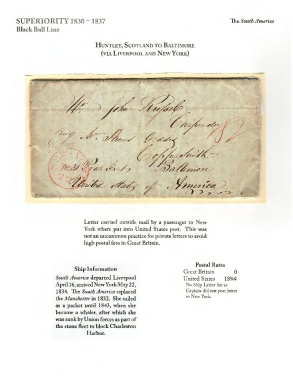 SUPERIORITY 1830 - 1837
The South America
Black Ball Line
HUNTLEY, SCOTLAND TO BALTIMORE
(VIA LIVERPOOL AND NEW YORK)
Mr John
Carpender
Coppersmith
Baltimore
United States of America
Letter carried outside mail by a passenger to New
York where put into United States post. This was
not an uncommon practice for private letters to avoid
high postal fees in Great Britain.
Ship Information
South America departed Liverpool
April 16, arrived New York May 22,
1834. The South America replaced
the Manchester in 1832. She sailed
as a packet until 1843, when she
become a whaler, after which she
was sunk by Union forces as part of
the stone fleet to block Charleston
Harbor.
Postal Rates
Great Britain 0
United States 18¾¢
No Ship Letter fee as
Captain did not post letter
in New York.